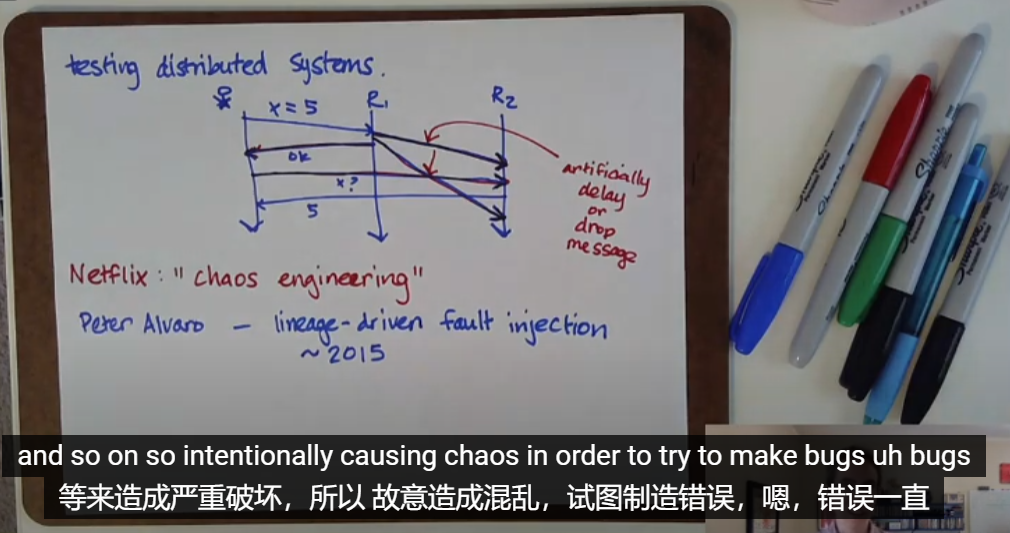 testing distributed systems.
x = 5
R1
R2
ok
x?
5
artificially
delay
or
drop
message
Netflix: "chaos engineering"
Peter Alvaro — lineage-driven fault injection
~2015
Sharpie
and so on so intentionally causing chaos in order to try to make bugs uh bugs
等来造成严重破坏，所以 故意造成混乱，试图制造错误，嗯，错误一直